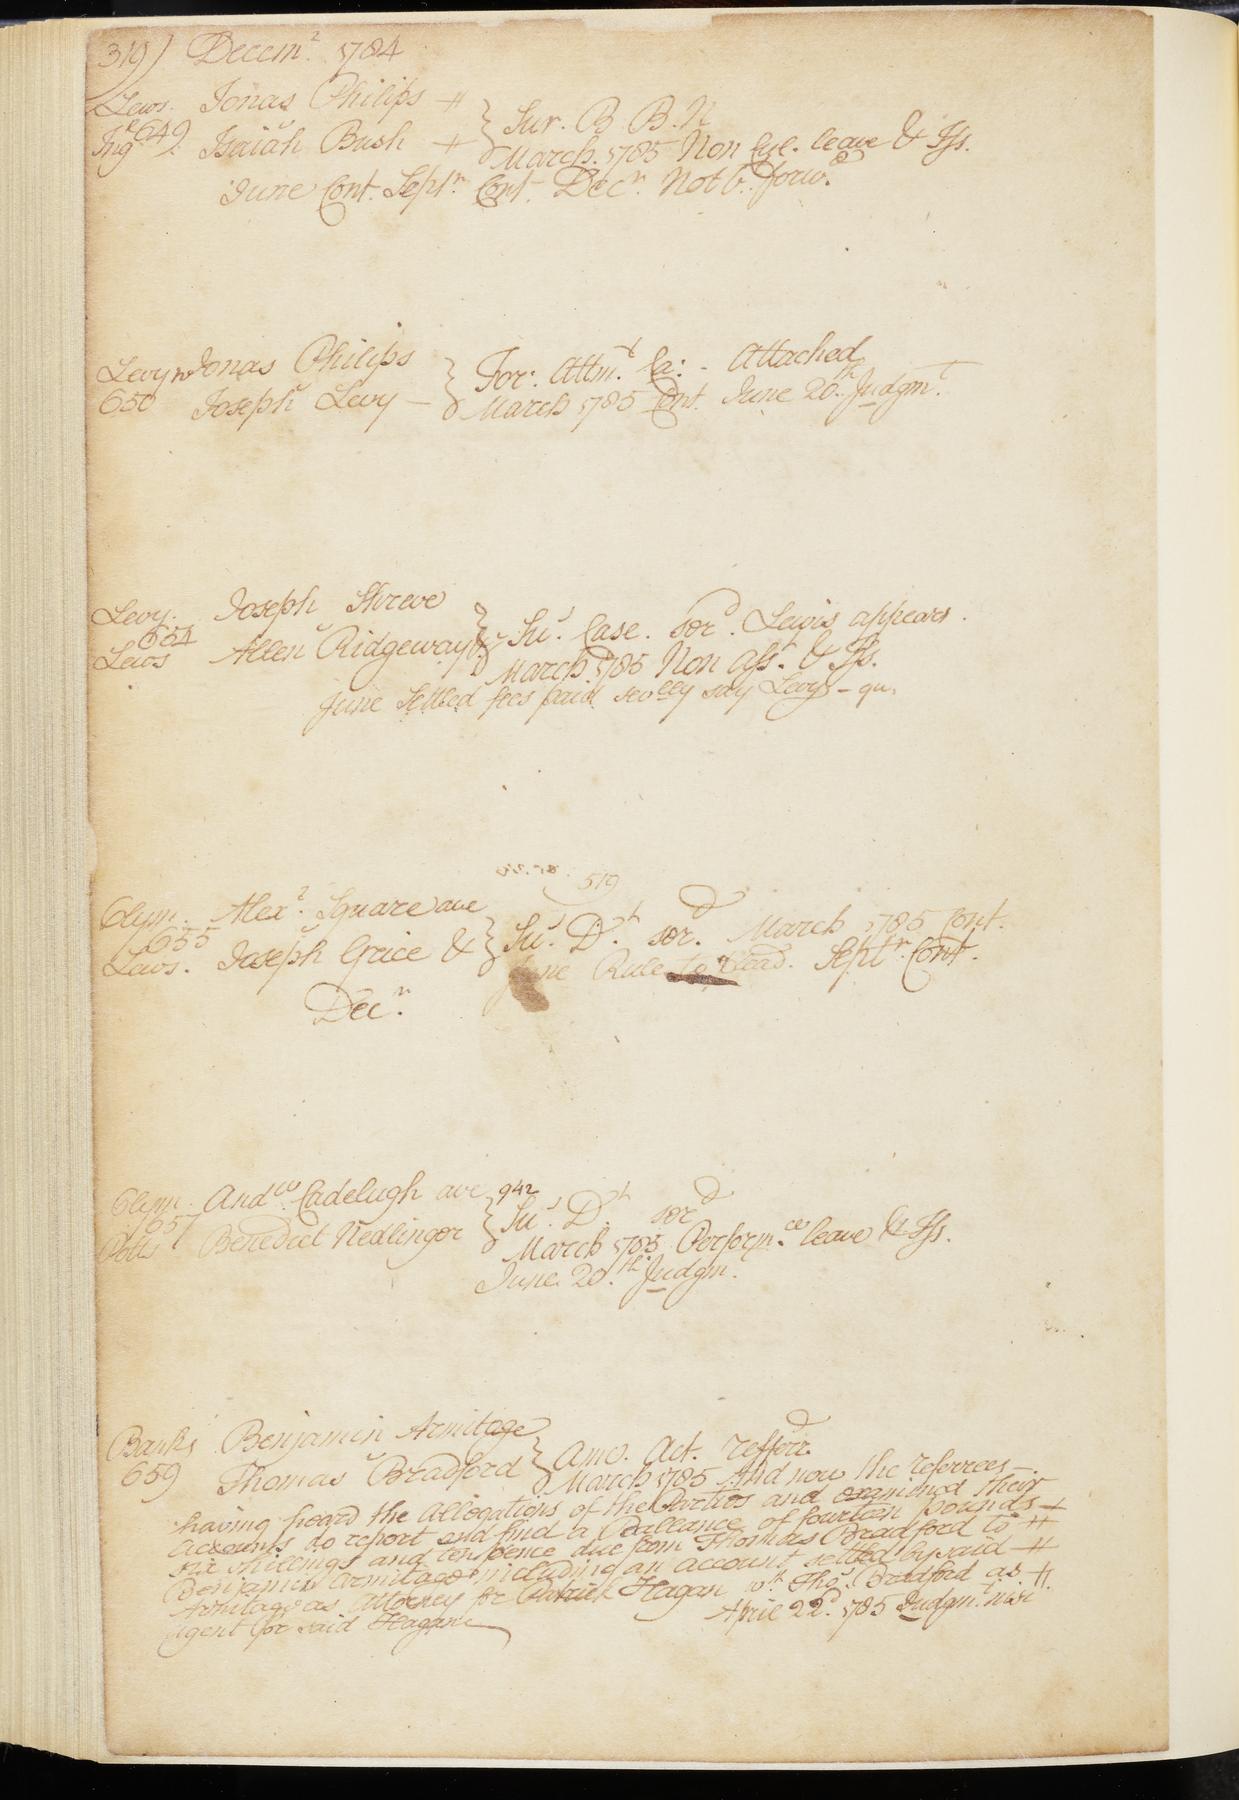 319) Decemr. 1784
Lews. Jonas Philips
649 Isaiah Bush } Sur. B. B. N
Ingr. March 1785 Non Cul. leave & Iss.
June Cont. Septr. Cont. Decr. Not b. forwd.
Levy Jonas Philips } For. Attmt. Ca: - Attached
650 Joseph Levy - March 1785 Cont. June 20th. Judgmt.
Levy. Joseph Shreve
654 } Su. Case. serd. Lewis appears.
Lews Allen Ridgeway March 1785 Non Asst. & Iss.
June Settled fees paid sevlly say Levy - qu.
519
Clym. Alexr. Square ave
655 } Su. Dt. serd. March 1785 Cont.
Lews. Joseph Grice & June Rule to plead. Septr. Cont.
Decr.
Clym. Andw. Cadelugh ave 942
657 } Su. Dt. serd
Potts Benedict Nedlinger March 1785 Performce. leave & Iss.
June 20th. Judgm.
Banks Benjamin Armitage
659 Thomas Bradford } Amo. Act. Refferd.
March 1785 And now the referees
having heard the Allegations of the Parties and examined their
Accounts do report and find a Ballance of fourteen pounds
six shillings and ten pence due from Thomas Bradford to
Benjamin Armitage including an account settled by said
Armitage as Attorney for Patrick Hagan wth. Thos. Bradford as
agent for said Hagan
April 22d. 1785 Judgmt. nisi